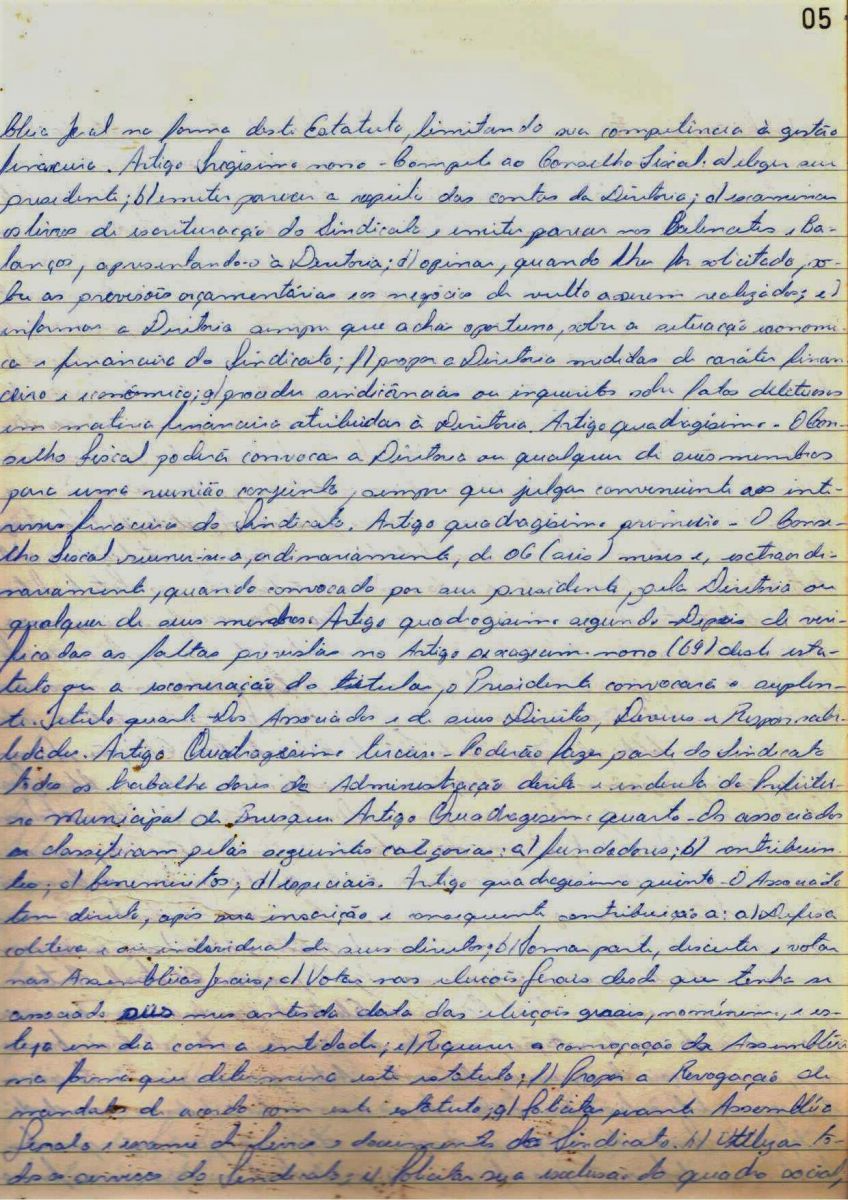 05
bléia Geral na forma deste Estatuto, limitando sua competência à gestão
financeira. Artigo trigésimo nono - Compete ao Conselho Fiscal: a) eleger seu
presidente; b) emitir parecer a respeito das contas da Diretoria; c) examinar
os livros de escrituração do Sindicato e emitir parecer nos Balancetes e Ba-
lanços, apresentando-o à Diretoria; d) opinar, quando lhe for solicitado, so-
bre as provisões orçamentárias e os negócios de vulto a serem realizados; e)
informar a Diretoria sempre que achar oportuno, sobre a situação econômi-
ca e financeira do Sindicato; f) propor a Diretoria medidas de caráter finan
ceiro e econômico; g) proceder sindicâncias ou inquéritos sobre fatos delituosos
em matéria financeira atribuídas à Diretoria. Artigo quadragésimo - O Con-
selho Fiscal poderá convocar a Diretoria ou qualquer de seus membros
para uma reunião conjunta, sempre que julgar conveniente aos inte-
resses financeira do Sindicato. Artigo quadragésimo primeiro - O Conse-
lho Fiscal reunir-se-a, ordinariamente, de 06 (seis) meses e, extraordi-
nariamente, quando convocado por seu presidente, pela Diretoria ou
qualquer de seus membros. Artigo quadragésimo segundo - Depois de veri-
ficadas as faltas previstas no Artigo sexagésimo nono (69) deste esta-
tuto ou a exoneração do titular, o Presidente convocará o suplen-
te. Título quarto - Dos Associados e de seus Direitos, Deveres e Responsabi-
lidades. Artigo Quadragésimo terceiro - Poderão fazer parte do Sindicato
todos os trabalhadores da Administração direta e indireta da Prefeitu-
ra Municipal de Brusque. Artigo Quadragésimo quarto - Os associados
se classificam pelas seguintes categorias: a) fundadores; b) contribuin-
tes; c) beneméritos; d) especiais. Artigo quadragésimo quinto - O Associado
tem direito, após sua inscrição e consequente contribuição a: a) Defesa
coletiva e ou individual de seus direitos; b) Tomar parte, discutir e votar
nas Assembléias Gerais; c) Votar nas eleições Gerais desde que tenha se
associado seis mes antes da data das eleições gerais, no mínimo, e es-
teja em dia com a entidade; e) Requerer a convocação da Assembléia
na forma que determina este estatuto; f) Propor a Revogação de
mandato de acordo com este estatuto; g) Solicitar perante Assembléia
Geral o exame de livros e documentos do Sindicato. h) Utilizar to-
dos os serviços do Sindicato; i) Solicitar seja exclusão do quadro social;